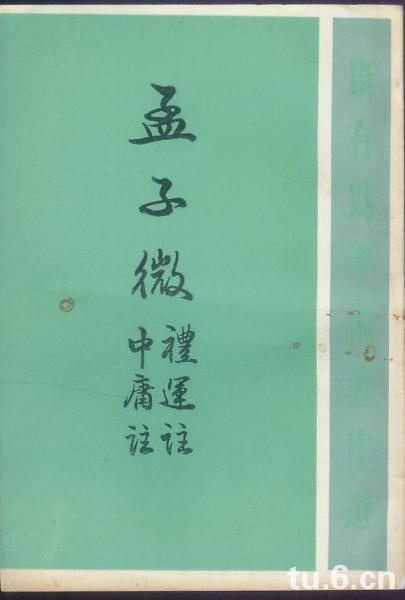 康有爲學術著作選
孟子微
禮運註
中庸註
tu.6.cn